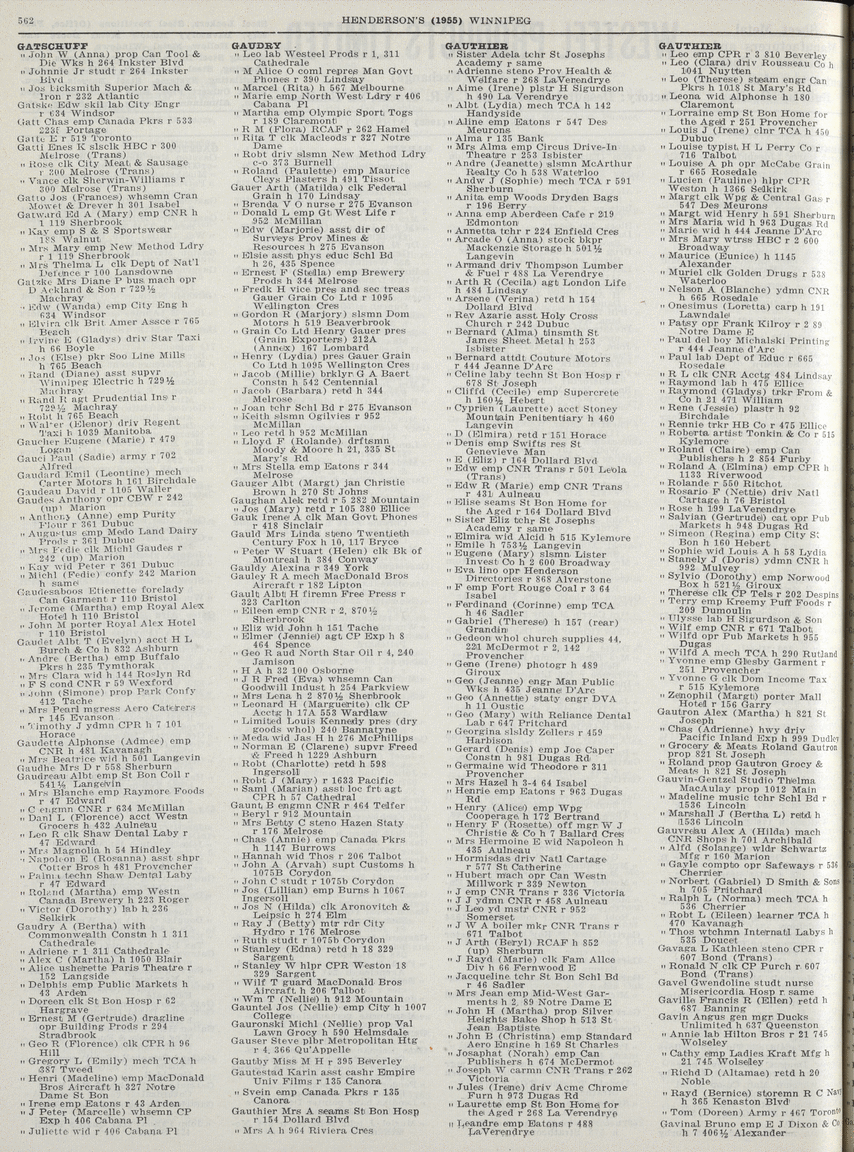 562
HENDERSON'S (1955) WINNIPEG
GATSCHUFF
" John W (Anna) prop Can Tool &
Die Wks h 264 Inkster Blvd
" Johnnie Jr studt r 264 Inkster
Blvd
" Jos blcksmith Superior Mach &
Iron r 232 Atlantic
Gatske Edw skil lab City Engr
r 634 Windsor
Gatt Chas emp Canada Pkrs r 533
223F Portage
Gatte E r 519 Toronto
Gatti Enes K slsclk HBC r 300
Melrose (Trans)
" Rose clk City Meat & Sausage
r 300 Melrose (Trans)
" Vance clk Sherwin-Williams r
300 Melrose (Trans)
Gatto Jos (Frances) whsemn Cran
Mowet & Drever h 301 Isabel
Gatward Ed A (Mary) emp CNR h
1 119 Sherbrook
" Kay emp S & S Sportswear
188 Walnut
" Mrs Mary emp New Method Ldry
r 1 119 Sherbrook
" Mrs Thelma L clk Dept of Nat'l
Defence r 100 Lansdowne
Gatzke Mrs Diane P bus mach opr
D Ackland & Son r 729½
Machray
" Edw (Wanda) emp City Eng h
634 Windsor
" Elvira clk Brit Amer Assce r 765
Beach
" Irvine E (Gladys) driv Star Taxi
h 66 Boyle
" Jos (Else) pkr Soo Line Mills
h 765 Beach
" Rand (Diane) asst supvr
Winnipeg Electric h 729½
Machray
" Rand R agt Prudential Ins r
729½ Machray
" Robt h 765 Beach
" Walter (Elenor) driv Regent
Taxi h 1039 Manitoba
Gaucher Eugene (Marie) r 479
Logan
Gauci Paul (Sadie) army r 702
Alfred
Gaudard Emil (Leontine) mech
Carter Motors h 161 Birchdale
Gaudeau David r 1106 Waller
Gaudes Anthony opr CBW r 242
(up) Marion
" Anthony (Anne) emp Purity
Flour r 361 Dubuc
" Augustus emp Medo Land Dairy
Prods r 361 Dubuc
" Mrs Fedie clk Michl Gaudes r
242 (up) Marion
" Kay wid Peter r 361 Dubuc
" Michl (Fedie) confy 242 Marion
h same
Gaudesaboos Etienette forelady
Can Garment r 110 Bristol
" Jerome (Martha) emp Royal Alex
Hotel h 110 Bristol
" John M porter Royal Alex Hotel
r 110 Bristol
Gaudet Albt T (Evelyn) acct H L
Burch & Co h 832 Ashburn
" Andre (Bertha) emp Buffalo
Pkrs h 235 Tymthorak
" Mrs Clara wid h 144 Roslyn Rd
" F S cond CNR r 59 Wexford
" John (Simone) prop Park Confy
412 Tache
" Mrs Pearl mgress Aero Caterers
r 145 Evanson
" Timothy J ydmn CPR h 7 101
Horace
Gaudette Alphonse (Admee) emp
CNR h 481 Kavanagh
" Mrs Beatrice wid h 501 Langevin
Gaudhe Mrs D r 558 Sherburn
Gaudreau Albt emp St Bon Coll r
541½ Langevin
" Mrs Blanche emp Raymore Foods
r 47 Edward
" C engmn CNR r 634 McMillan
" Danl L (Florence) acct Westn
Grocers h 432 Aulneau
" Leo R clk Shaw Dental Laby r
47 Edward
" Mrs Magnolia h 54 Hindley
" Napoleon E (Rosanna) asst shpr
Cotter Bros h 481 Provencher
" Palma techn Shaw Dental Laby
r 47 Edward
" Roland (Martha) emp Westn
Canada Brewery h 223 Roger
" Victor (Dorothy) lab h 236
Selkirk
Gaudry A (Bertha) with
Commonwealth Constn h 1 311
Cathedral
" Adriene r 1 311 Cathedral
" Alex C (Martha) h 1050 Blair
" Alice usherette Paris Theatre r
152 Langside
" Delphis emp Public Markets h
43 Arden
" Doreen clk St Bon Hosp r 62
Hargrave
" Ernest M (Gertrude) dragline
opr Building Prods r 294
Stradbrook
" Geo R (Florence) clk CPR h 96
Hill
" Gregory L (Emily) mech TCA h
387 Tweed
" Henri (Madeline) emp MacDonald
Bros Aircraft h 327 Notre
Dame St Bon
" Irene emp Eatons r 43 Arden
" J Peter (Marcelle) whsemn CP
Exp h 406 Cabana Pl
" Juliette wid r 406 Cabana Pl
GAUDRY
" Leo lab Westeel Prods r 1, 311
Cathedral
" M Alice O coml repres Man Govt
Phones r 390 Lindsay
" Marcel (Rita) h 567 Melbourne
" Marie emp North West Ldry r 406
Cabana Pl
" Martha emp Olympic Sport Togs
r 189 Claremont
" R M (Flora) RCAF r 262 Hamel
" Rita T clk Macleods r 327 Notre
Dame
" Robt driv slsmn New Method Ldry
c-o 373 Burnell
" Roland (Paulette) emp Maurice
Cleys Plasters h 491 Tissot
Gauer Arth (Matilda) clk Federal
Grain h 170 Lindsay
" Brenda V O nurse r 275 Evanson
" Donald L emp Gt West Life r
952 McMillan
" Edw (Marjorie) asst dir of
Surveys Prov Mines &
Resources h 275 Evanson
" Elsie asst phys educ Schl Bd
h 26, 435 Spence
" Ernest F (Stella) emp Brewery
Prods h 344 Melrose
" Fredk H vice pres and sec treas
Gauer Grain Co Ltd r 1095
Wellington Cres
" Gordon R (Marjory) slsmn Dom
Motors h 519 Beaverbrook
" Grain Co Ltd Henry Gauer pres
(Grain Exporters) 212A
(Annex) 167 Lombard
" Henry (Lydia) pres Gauer Grain
Co Ltd h 1095 Wellington Cres
" Jacob (Millie) brklyr G A Baert
Constn h 542 Centennial
" Jacob (Barbara) retd h 344
Melrose
" Joan tchr Schl Bd r 275 Evanson
" Keith slsmn Ogilvies r 952
McMillan
" Leo retd h 952 McMillan
" Lloyd F (Rolande) drftsmn
Moody & Moore h 21, 335 St
Mary's Rd
" Mrs Stella emp Eatons r 344
Melrose
Gauger Albt (Margt) jan Christie
Brown h 270 St Johns
Gaughan Alek retd r 5 282 Mountain
" Jos (Mary) retd r 105 380 Ellice
Gauk Irene A clk Man Govt Phones
r 418 Sinclair
Gauld Mrs Linda steno Twentieth
Century Fox h 10, 117 Bryce
" Peter W Stuart (Helen) clk Bk of
Montreal h 384 Conway
Gauldy Alexina r 349 York
Gauley R A mech MacDonald Bros
Aircraft r 182 Lipton
Gault Albt H firemn Free Press r
323 Carlton
" Eileen emp CNR r 2, 870½
Sherbrook
" Eliz wid John h 151 Tache
" Elmer (Jennie) agt CP Exp h 8
464 Spence
" Geo R aud North Star Oil r 4, 240
Jamison
" H A h 32 100 Osborne
" J R Fred (Eva) whsemn Can
Goodwill Indust h 254 Parkview
" Mrs Lena h 2 870½ Sherbrook
" Leonard H (Marguerite) clk CP
Acctg h 17A 553 Wardlaw
" Limited Louis Kennedy pres (dry
goods whol) 240 Bannatyne
" Meda wid Jas H h 276 McPhillips
" Norman E (Clarene) supvr Freed
& Freed h 1229 Ashburn
" Robt (Charlotte) retd h 598
Ingersoll
" Robt J (Mary) r 1633 Pacific
" Saml (Marian) asst loc frt agt
CPR h 57 Cathedral
Gaunt B engmn CNR r 464 Telfer
" Beryl r 912 Mountain
" Mrs Betty C steno Hazen Staty
r 176 Melrose
" Chas (Annie) emp Canada Pkrs
h 1147 Burrows
" Hannah wid Thos r 206 Talbot
" John A (Arvah) supt Customs h
1075B Corydon
" John C studt r 1075b Corydon
" Jos (Lillian) emp Burns h 1067
Ingersoll
" Jos N (Hilda) clk Aronovitch &
Leipsic h 274 Elm
" Ray J (Betty) mtr rdr City
Hydro r 176 Melrose
" Ruth studt r 1075b Corydon
" Stanley (Edna) retd h 18 329
Sargent
" Stanley W hlpr CPR Weston 18
329 Sargent
" Wilf T guard MacDonald Bros
Aircraft h 206 Talbot
" Wm T (Nellie) h 912 Mountain
Gauntel Jos (Nellie) emp City h 1007
College
Gauronski Michl (Nellie) prop Val
Lawn Grocy h 590 Helmsdale
Gauser Steve plbr Metropolitan Htg
r 4, 366 Qu'Appelle
Gautby Miss M H r 395 Beverley
Gautestad Karin asst cashr Empire
Univ Films r 135 Canora
" Svein emp Canada Pkrs r 135
Canora
Gauthier Mrs A seams St Bon Hosp
r 154 Dollard Blvd
" Mrs A h 964 Riviera Cres
GAUTHIER
" Sister Adela tchr St Josephs
Academy r same
" Adrienne steno Prov Health &
Welfare r 268 LaVerendrye
" Aime (Irene) plstr H Sigurdson
h 490 La Verendrye
" Albt (Lydia) mech TCA h 142
Handyside
" Aline emp Eatons r 547 Des
Meurons
" Alma r 135 Bank
" Mrs Alma emp Circus Drive-In
Theatre r 253 Isbister
" Andre (Jeanette) slsmn McArthur
Realty Co h 538 Waterloo
" Andw J (Sophie) mech TCA r 591
Sherburn
" Anita emp Woods Dryden Bags
r 196 Berry
" Anna emp Aberdeen Cafe r 219
Edmonton
" Annetta tchr r 224 Enfield Cres
" Arcade O (Anna) stock bkpr
Mackenzie Storage h 501½
Langevin
" Armand driv Thompson Lumber
& Fuel r 488 La Verendrye
" Arth R (Cecila) agt London Life
h 484 Lindsay
" Arsene (Verina) retd h 154
Dollard Blvd
" Rev Azarie asst Holy Cross
Church r 242 Dubuc
" Bernard (Alma) tinsmth St
James Sheet Metal h 253
Isbister
" Bernard attdt Couture Motors
r 444 Jeanne D'Arc
" Celine laby techn St Bon Hosp r
678 St Joseph
" Cliffd (Cecile) emp Supercrete
h 160½ Hebert
" Cyprien (Laurette) acct Stoney
Mountain Penitentiary h 460
Langevin
" D (Elmira) retd r 151 Horace
" Denis emp Swifts res St
Genevieve Man
" E (Eliz) r 164 Dollard Blvd
" Edw emp CNR Trans r 501 Leola
(Trans)
" Edw R (Marie) emp CNR Trans
r 431 Aulneau
" Elise seams St Bon Home for
the Aged r 164 Dollard Blvd
" Sister Eliz tchr St Josephs
Academy r same
" Elmira wid Alcid h 515 Kylemore
" Emile h 753½ Langevin
" Eugene (Mary) slsmn Lister
Invest Co h 2 600 Broadway
" Eva lino opr Henderson
Directories r 868 Alverstone
" F emp Fort Rouge Coal r 3 64
Isabel
" Ferdinand (Corinne) emp TCA
h 46 Sadler
" Gabriel (Therese) h 157 (rear)
Grandin
" Gedeon whol church supplies 44,
221 McDermot r 2, 142
Provencher
" Gene (Irene) photogr h 489
Giroux
" Geo (Jeanne) engr Man Public
Wks h 435 Jeanne D'Arc
" Geo (Annette) staty engr DVA
h 11 Oustic
" Geo (Mary) with Reliance Dental
Lab r 647 Pritchard
" Georgina slsldy Zellers r 459
Harbison
" Gerard (Denis) emp Joe Caper
Constn h 981 Dugas Rd
" Germaine wid Theodore r 311
Provencher
" Mrs Hazel h 3-4 64 Isabel
" Henrie emp Eatons r 963 Dugas
Rd
" Henry (Alice) emp Wpg
Cooperage h 172 Bertrand
" Henry F (Rosette) off mgr W J
Christie & Co h 7 Ballard Cres
" Mrs Hermoine E wid Napoleon h
435 Aulneau
" Hormisdas driv Natl Cartage
r 577 St Catherine
" Hubert mach opr Can Westn
Millwork r 339 Newton
" J emp CNR Trans r 336 Victoria
" J J ydmn CNR r 458 Aulneau
" J Leo yd mstr CNR r 952
Somerset
" J W A boiler mkr CNR Trans r
671 Talbot
" J Arth (Beryl) RCAF h 852
(up) Sherburn
" J Rayd (Marie) clk Fam Allce
Div h 66 Fernwood E
" Jacqueline tchr St Bon Schl Bd
r 46 Sadler
" Mrs Jean emp Mid-West Gar-
ments h 2, 89 Notre Dame E
" John H (Martha) prop Silver
Heights Bake Shop h 513 St
Jean Baptiste
" John B (Christina) emp Standard
Aero Engine h 169 St Charles
" Josaphat (Norah) emp Can
Publishers h 674 McDermot
" Joseph W carmn CNR Trans r 262
Victoria
" Jules (Irene) driv Acme Chrome
Furn h 973 Dugas Rd
" Laurette emp St Bon Home for
the Aged r 268 La Verendrye
" Leandre emp Eatons r 488
LaVerendrye
GAUTHIER
" Leo emp CPR r 3 810 Beverley
" Leo (Clara) driv Rousseau Co h
1041 Nuytten
" Leo (Therese) steam engr Can
Pkrs h 1018 St Mary's Rd
" Leona wid Alphonse h 180
Claremont
" Lorraine emp St Bon Home for
the Aged r 251 Provencher
" Louis J (Irene) clnr TCA h 450
Dubuc
" Louise typist H L Perry Co r
716 Talbot
" Louise A ph opr McCabe Grain
r 665 Rosedale
" Lucien (Pauline) hlpr CPR
Weston h 1366 Selkirk
" Margt clk Wpg & Central Gas r
547 Des Meurons
" Margt wid Henry h 591 Sherburn
" Mrs Maria wid h 963 Dugas Rd
" Marie wid h 444 Jeanne D'Arc
" Mrs Mary wtrss HBC r 2 600
Broadway
" Maurice (Eunice) h 1145
Alexander
" Muriel clk Golden Drugs r 538
Waterloo
" Nelson A (Blanche) ydmn CNR
h 665 Rosedale
" Onesimus (Loretta) carp h 191
Lawndale
" Patsy opr Frank Kilroy r 2 89
Notre Dame E
" Paul del boy Michalski Printing
r 444 Jeanne d'Arc
" Paul lab Dept of Educ r 665
Rosedale
" R L clk CNR Acctg 484 Lindsay
" Raymond lab h 475 Ellice
" Raymond (Gladys) trkr From &
Co h 21 471 William
" Rene (Jessie) plastr h 92
Birchdale
" Rennie trkr HB Co r 475 Ellice
" Roberta artist Tonkin & Co r 515
Kylemore
" Roland (Claire) emp Can
Publishers h 2 854 Furby
" Roland A (Elmina) emp CPR h
1133 Riverwood
" Rolande r 550 Ritchot
" Rosario F (Nettie) driv Natl
Cartage h 76 Bristol
" Rose h 199 LaVerendrye
" Salvian (Gertrude) cat opr Pub
Markets h 948 Dugas Rd
" Simeon (Regina) emp City St
Bon h 160 Hebert
" Sophie wid Louis A h 58 Lydia
" Stanely J (Doris) ydmn CNR h
992 Mulvey
" Sylvio (Dorothy) emp Norwood
Box h 521½ Giroux
" Therese clk CP Tels r 202 Despins
" Terry emp Kreemy Puff Foods r
209 Dumoulin
" Ulysse lab H Sigurdson & Son
" Wilf emp CNR r 671 Talbot
" Wilfd opr Pub Markets h 955
Dugas
" Wilfd A mech TCA h 290 Rutland
" Yvonne emp Glesby Garment r
251 Provencher
" Yvonne G clk Dom Income Tax
r 515 Kylemore
" Zenophil (Margt) porter Mall
Hotel r 156 Garry
Gautron Alex (Martha) h 821 St
Joseph
" Chas (Adrienne) hwy driv
Pacific Inland Exp h 999 Dudley
" Grocery & Meats Roland Gautron
prop 821 St Joseph
" Roland prop Gautron Grocy &
Meats h 821 St Joseph
Gauvin-Gentzel Studio Thelma
MacAulay prop 1012 Main
" Madeline music tchr Schl Bd r
1536 Lincoln
" Marshall J (Bertha L) retd h
1536 Lincoln
Gauvreau Alex A (Hilda) mach
CNR Shops h 701 Archibald
" Alfd (Solange) wldr Schwartz
Mfg r 160 Marion
" Gayle compto opr Safeways r 536
Cherrier
" Norbert (Gabriel) D Smith & Sons
h 705 Pritchard
" Ralph L (Norma) mech TCA h
536 Cherrier
" Robt L (Eileen) learner TCA h
470 Kavanagh
" Thos wtchmn Internatl Labys h
535 Doucet
Gavaga L Kathleen steno CPR r
607 Bond (Trans)
" Ronald N clk CP Purch r 607
Bond (Trans)
Gavel Gwendoline studt nurse
Misericordia Hosp r same
Gaville Francis R (Ellen) retd h
687 Banning
Gavin Angus gen mgr Ducks
Unlimited h 637 Queenston
" Annie lab Hilton Bros r 21 745
Wolseley
" Cathy emp Ladies Kraft Mfg h
21 745 Wolseley
" Richd D (Altamae) retd h 20
Noble
" Rayd (Bernice) storemn R C Navy
h 365 Kenaston Blvd
" Tom (Doreen) Army r 467 Toronto
Gavinal Bruno emp E J Dixon & Co
h 7 406½ Alexander